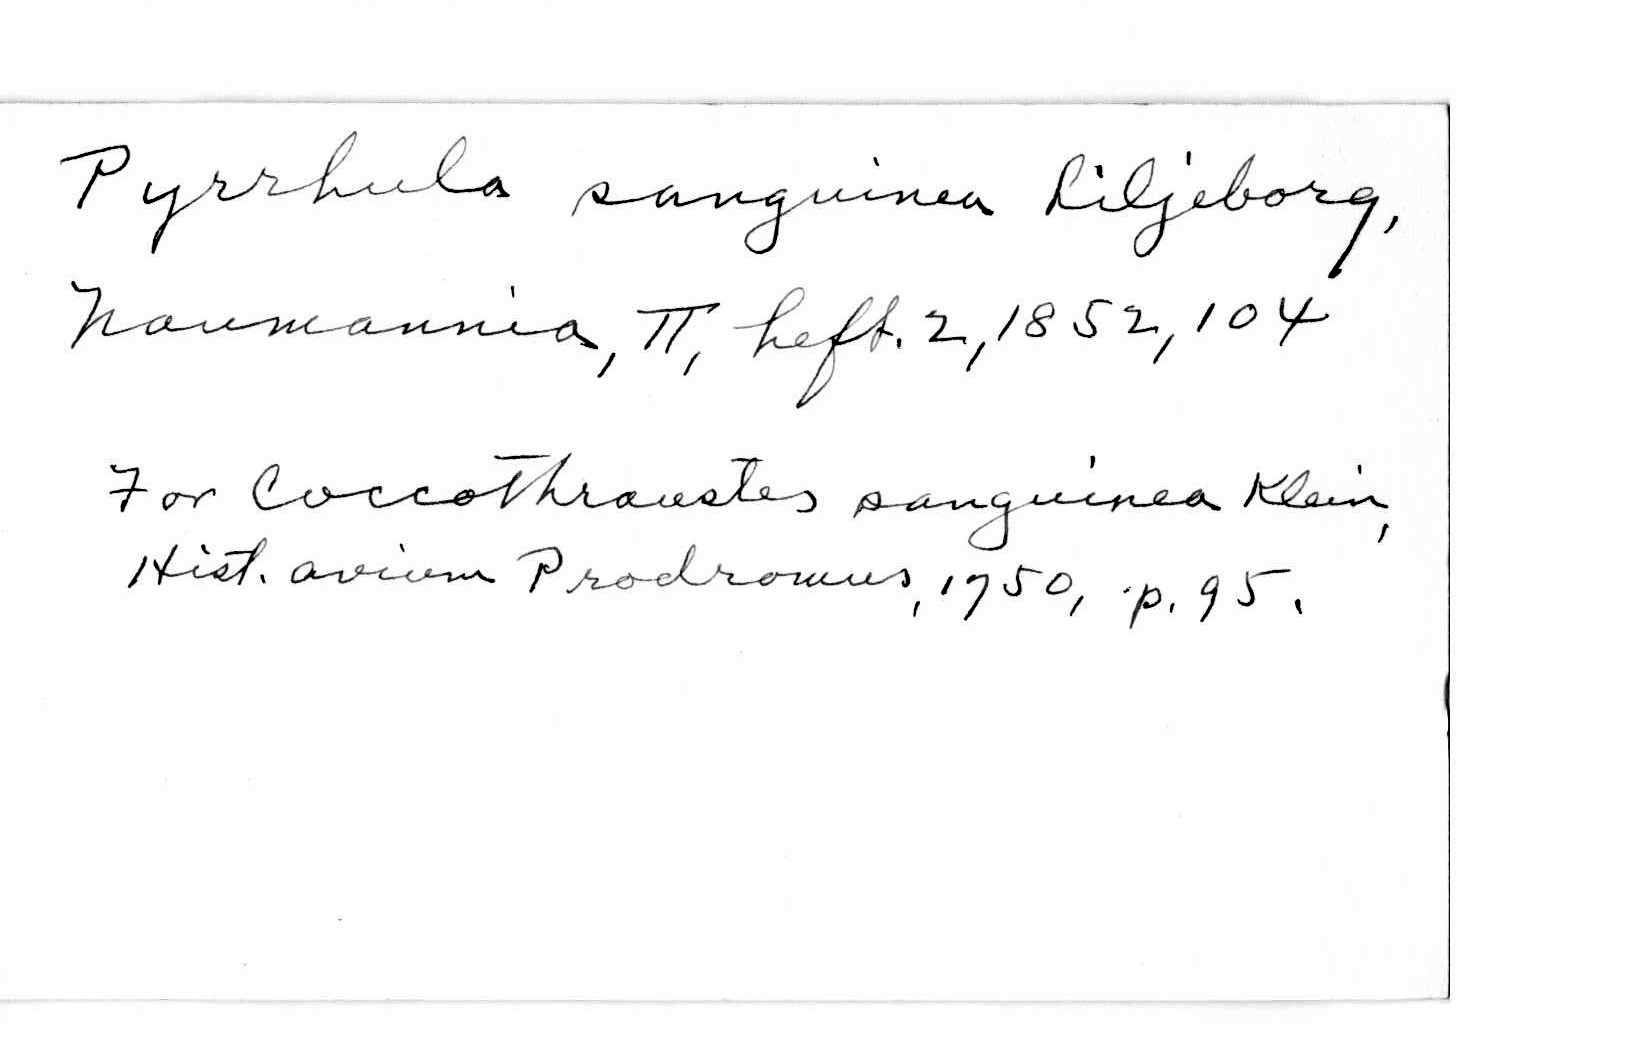 Pyrrhula sanguinea Liljeborg,
Naumannia, II, heft. 2, 1852, 104
For Coccothraustes sanguinea Klein,
Hist. avium Prodromus, 1750, p. 95.